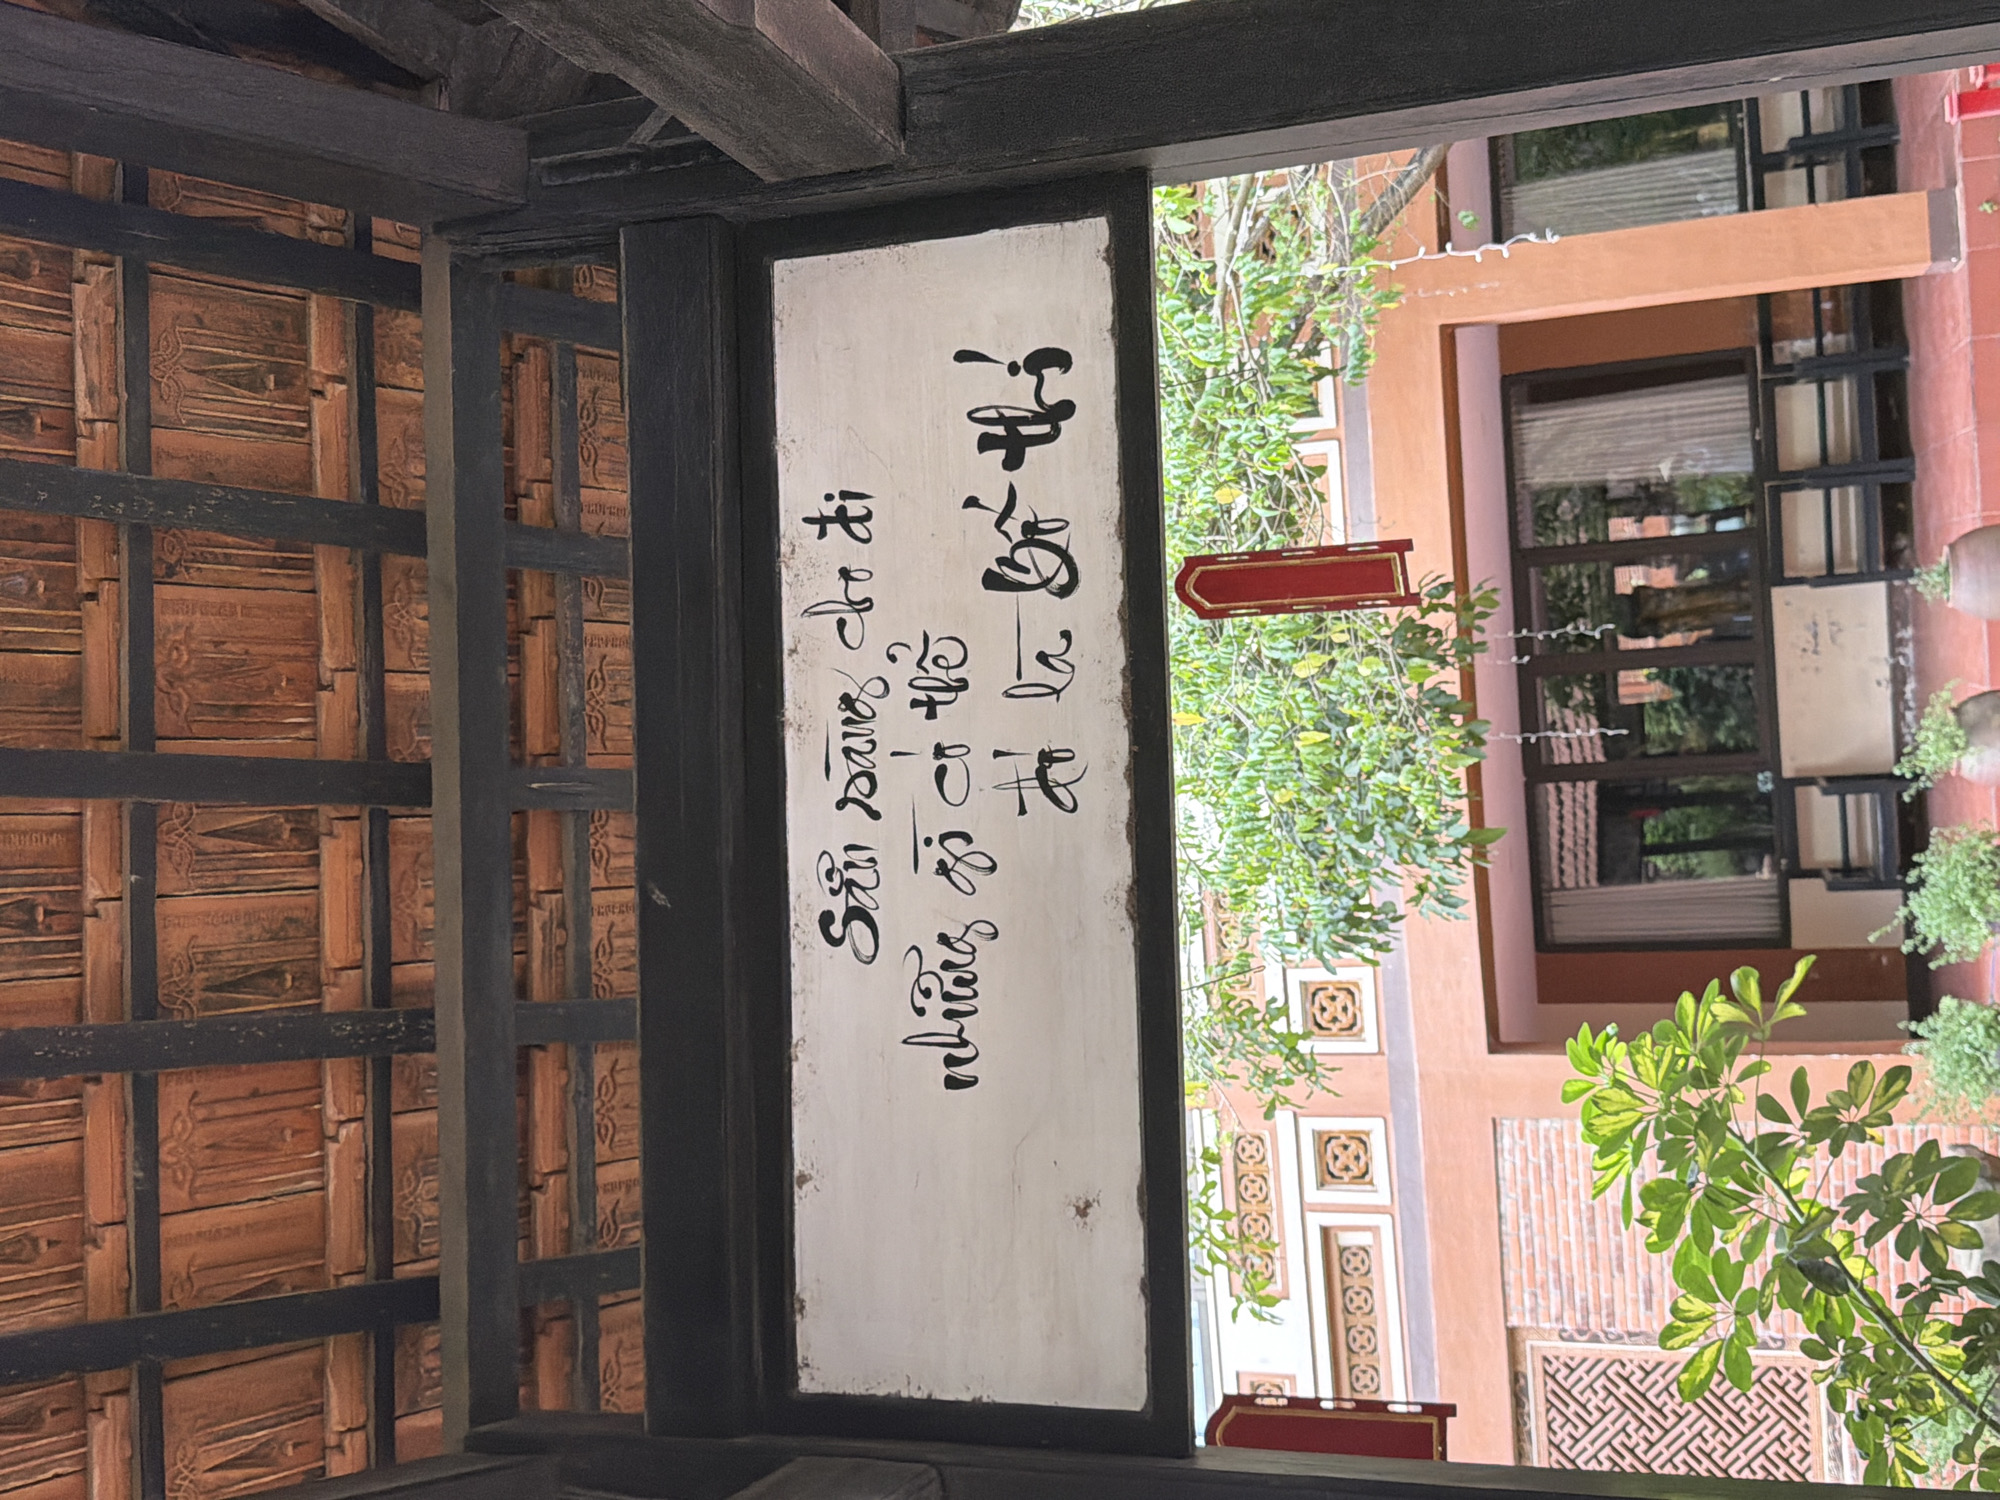 Sẵn sàng cho đi
những gì có thể
đó là Bố thí